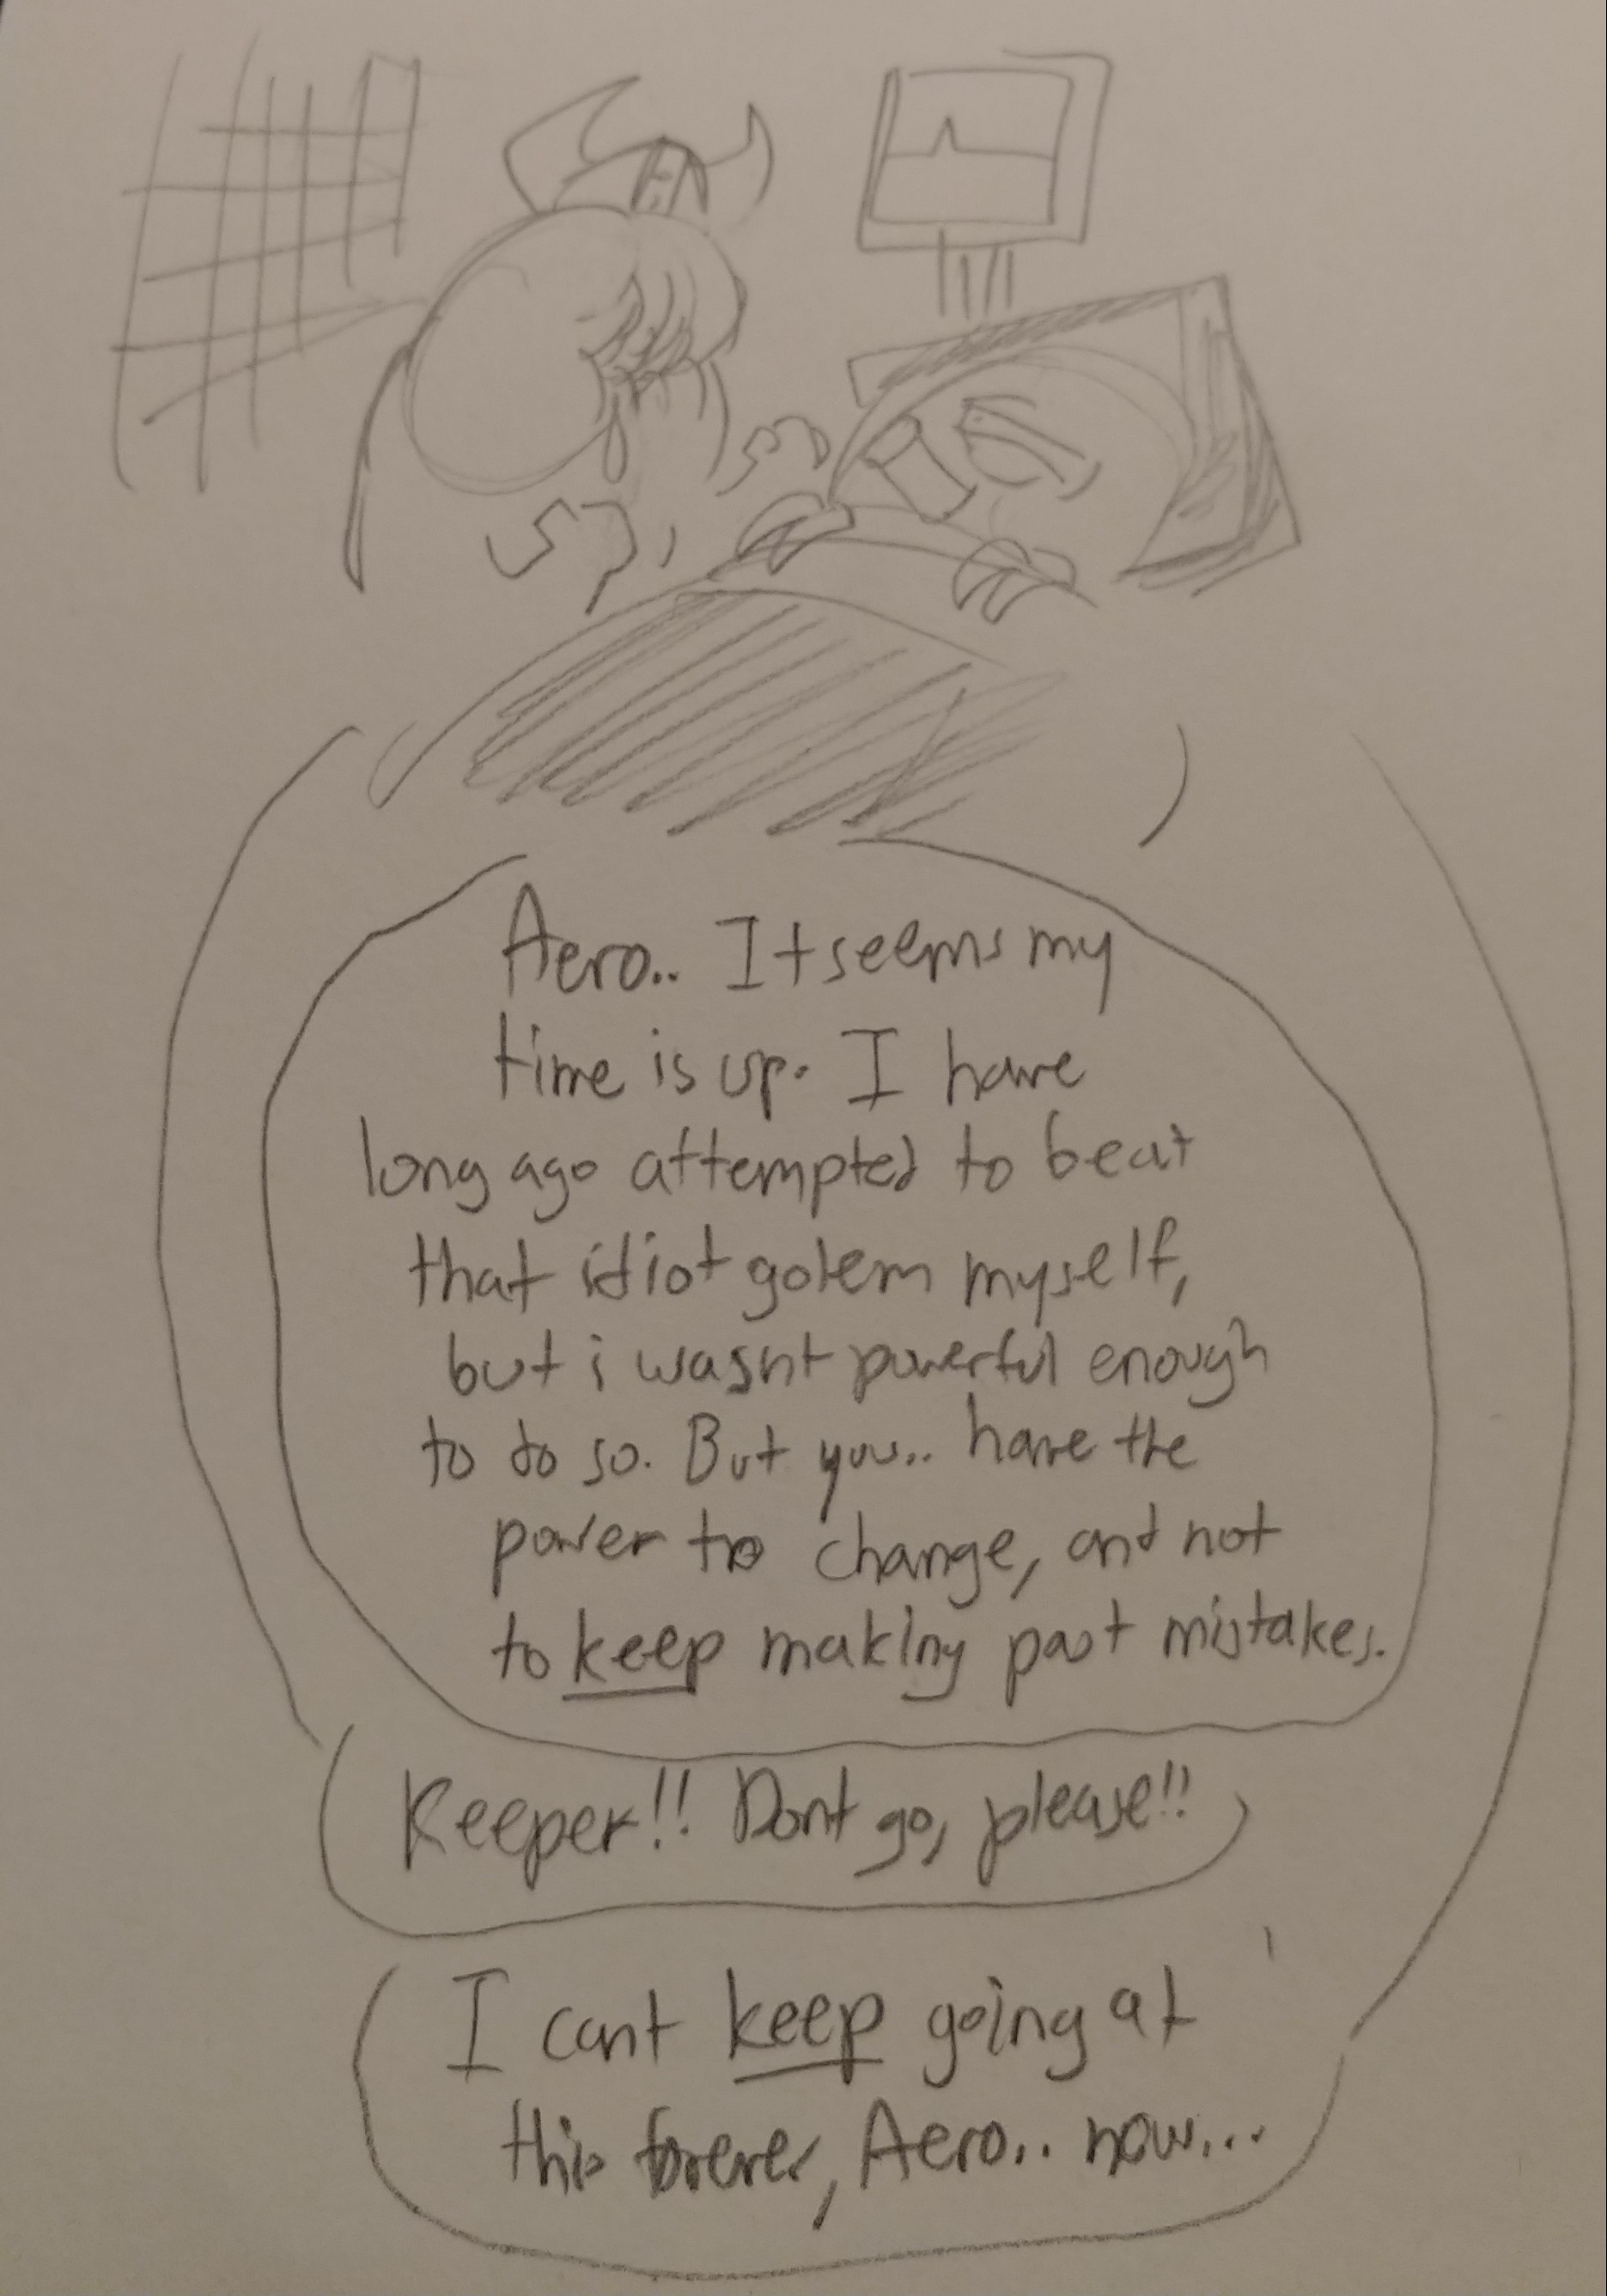 Aero.. It seems my
time is up. I have
long ago attempted to beat
that idiot golem myself,
but i wasnt powerful enough
to do so. But you.. have the
power to change, and not
to keep making past mistakes.
Keeper!! Dont go, please!!
I cant keep going at
this forever, Aero.. now...